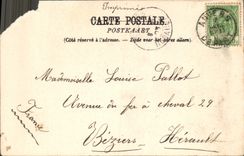 Imprimé
CARTE POSTALE.
POSTKAART
(Côté réservé à l'adresse. — Zijde voor het adres alleen.)
Mademoiselle Louise Pallot
Avenue du feu à cheval 29
Béziers Hérault
(France)